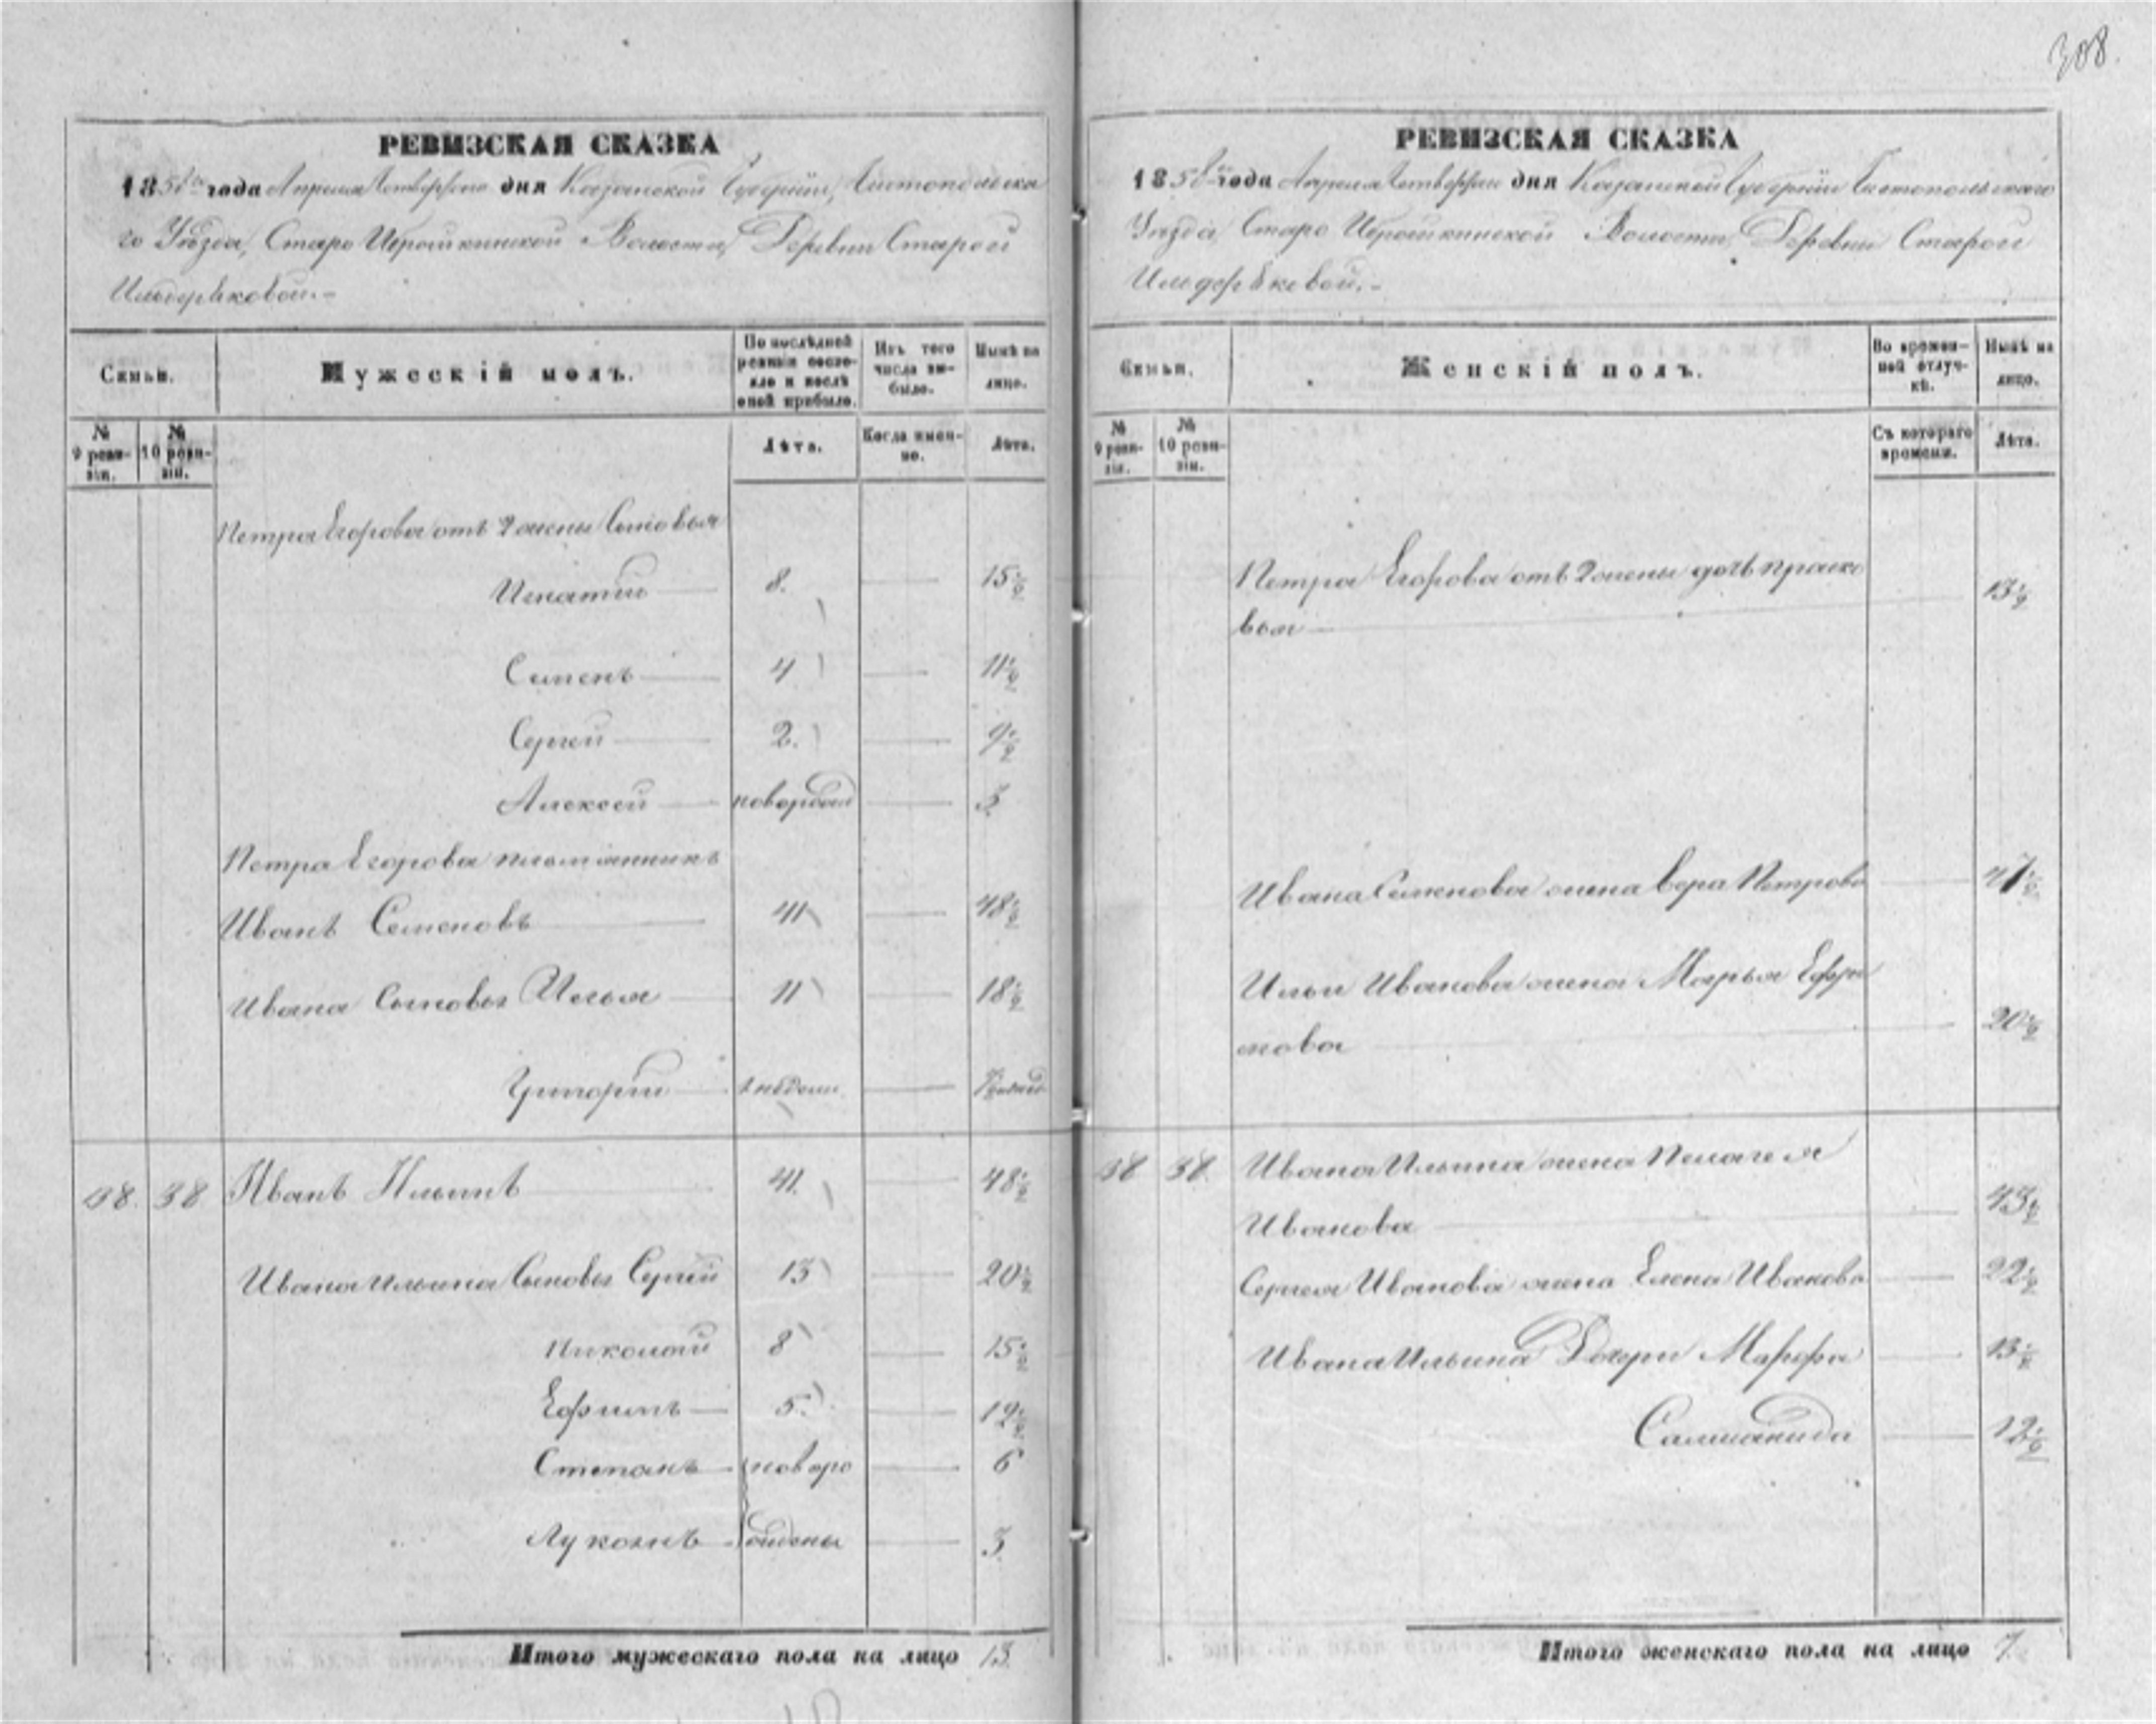 308.
РЕВИЗСКАЯ СКАЗКА
1858 года Апреля дня Казанской Губернїи, Чистопольска
го Уѣзда, Старо Ибрайкинской Волости, Деревни Старой
Ильдеряковой.
Семьи.
Мужескій полъ.
По послѣдней ревизіи состояло и послѣ оной прибыло.
Изъ того числа выбыло.
Нынѣ на лицо.
№ 9 ревизіи.
№ 10 ревизіи.
Лѣта.
Когда именно.
Лѣта.
Петра Егорова отъ 2 жены Сыновья
Игнатій 8. 15½
Семенъ 4 11½
Сергей 2. 9½
Алексей новорожд 3
Петра Егорова племянникъ
Иванъ Семеновъ 41 48½
Ивана Сыновья Илья 11 18½
Григорій недели 7½
38. 38 Иванъ Ильинъ 41. 48½
Ивана Ильина Сыновья Сергѣй 13 20½
Николай 8 15½
Ефимъ 5. 12½
Степанъ новоро 6
Лукоянъ ждены 3
Итого мужескаго пола на лицо 13
РЕВИЗСКАЯ СКАЗКА
1858 года Апреля дня Казанской Губернїи Чистопольскаго
Уѣзда Старо Ибрайкинской Волости, Деревни Старой
Ильдеряковой.
Семьи.
Женскій полъ.
Во временной отлучкѣ.
Нынѣ на лицо.
№ 9 ревизіи.
№ 10 ревизіи.
Съ котораго времени.
Лѣта.
Петра Егорова отъ 2 жены дочь Праско
вья 13½
Ивана Семенова жена Вера Петрова 47½
Ильи Иванова жена Марья Ефри
мова 20½
38 38. Ивана Ильина жена Пелагея
Иванова 43½
Сергея Иванова жена Елена Иванова 22½
Ивана Ильина Дочери Марфа 13½
Саломанида 12½
Итого женскаго пола на лицо 7.